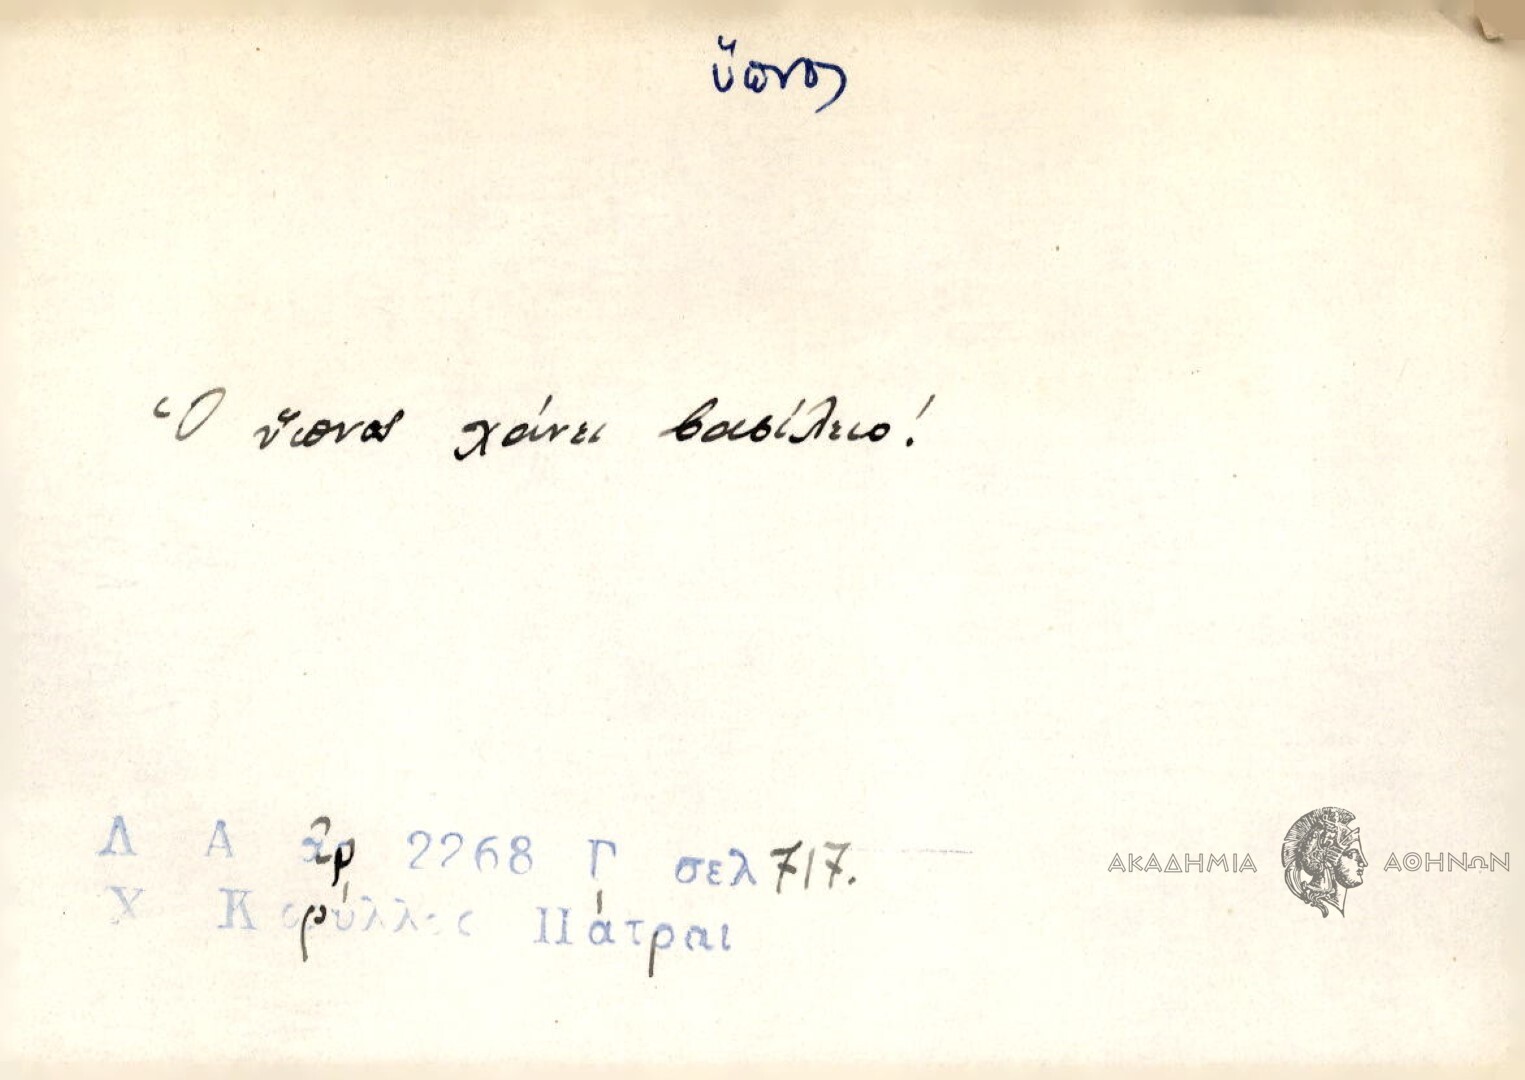 ὕπνος
Ὁ ὕπνος χάνει βασίλειο!
Λ Α ἀρ 2268 Γ σελ 717.
Χ Κορύλλος Πάτραι
ΑΚΑΔΗΜΙΑ ΑΘΗΝΩΝ